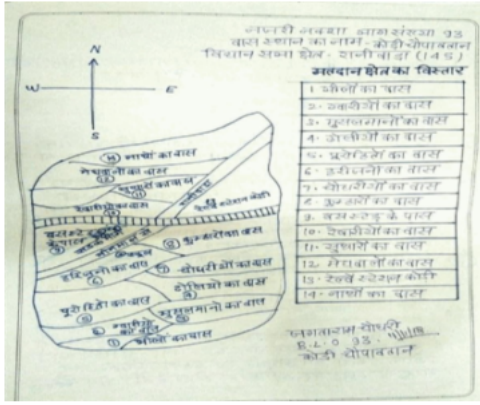 नजरी नक्शा भाग संख्या 93
वास स्थान का नाम - कोडी चौपावतान
विधान सभा क्षेत्र - रानीवाडा (145)
मतदान क्षेत्र का विस्तार
N
W E
S
1 भीलों का वास
2. ग्वारीयों का वास
3. मुसलमानों का वास
4. ढोलीयों का वास
5. पुरोहितों का वास
6. हरीजनों का वास
7. चौधरीयों का वास
8. कुम्हारों का वास
9. बस स्टेण्ड के पास
10. रेबारीयों का वास
11. सुथारों का वास
12. मेघवालों का वास
13. रेल्वे स्टेशन कोडी
14. नाथों का वास
14 नाथों का वास
मेघवालों का वास
12
सुथारों का वास
11
रेबारीयों का वास
10
रेल्वे स्टेशन कोडी
बस स्टेण्ड
के पास
9
8 कुम्हारों का वास
हरिजनों का वास
6
7 चौधरीयों का वास
ढोलियों का वास
4
पुरोहितों का वास
5
मुसलमानों का वास
3
2 ग्वारीयों
का वास
1 भीलों का वास
जगताराम चौधरी
B.L.O 93
कोडी चौपावतान